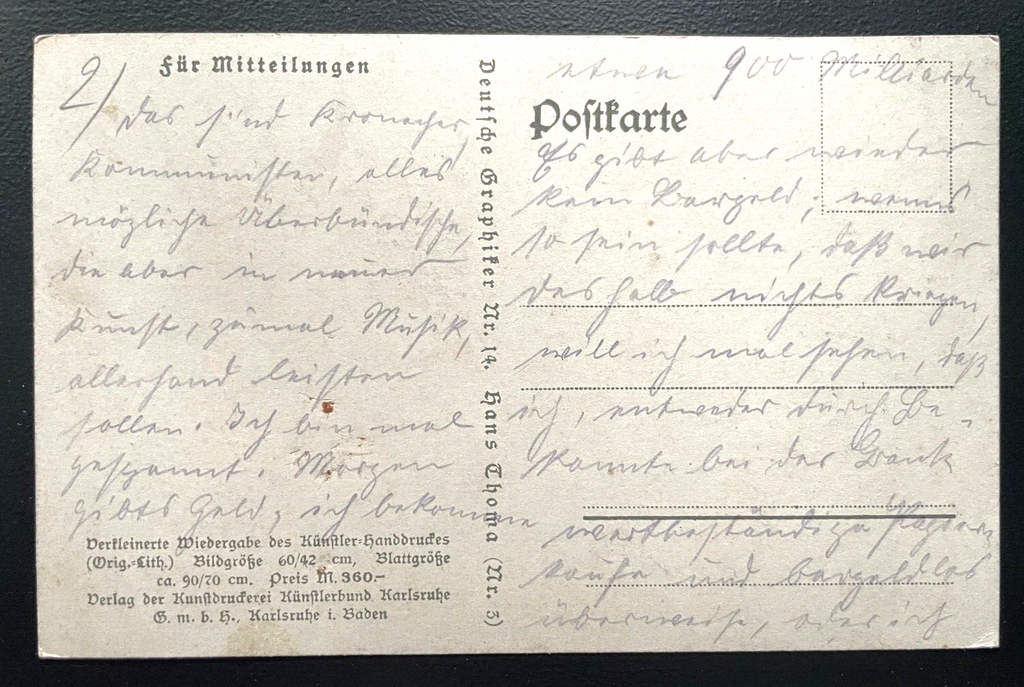 2)
Für Mitteilungen
Das sind Kronacher,
Kommunisten, alles
mögliche Überbündische,
die aber in neuer
Kunst, zumal Musik,
allerhand leisten
sollen. Ich bin mal
gespannt. Morgen
gibts Geld, ich bekomme
Verkleinerte Wiedergabe des Künstler-Handdruckes
(Orig.-Lith.) Bildgröße 60/42 cm, Blattgröße
ca. 90/70 cm. Preis M. 360.–
Verlag der Kunstdruckerei Künstlerbund Karlsruhe
G. m. b. H., Karlsruhe i. Baden
Deutsche Graphiker Nr. 14. Hans Thoma (Nr. 3)
etwa 900 Milliarden
Postkarte
Es gibt aber wieder
kein Bargeld; wenns
so sein sollte, daß wir
deshalb nichts kriegen,
will ich mal sehen, daß
ich, entweder durch Be-
kannte bei der Bank
wertbeständige Papiere
kaufe und bargeldlos
überweise, oder ich